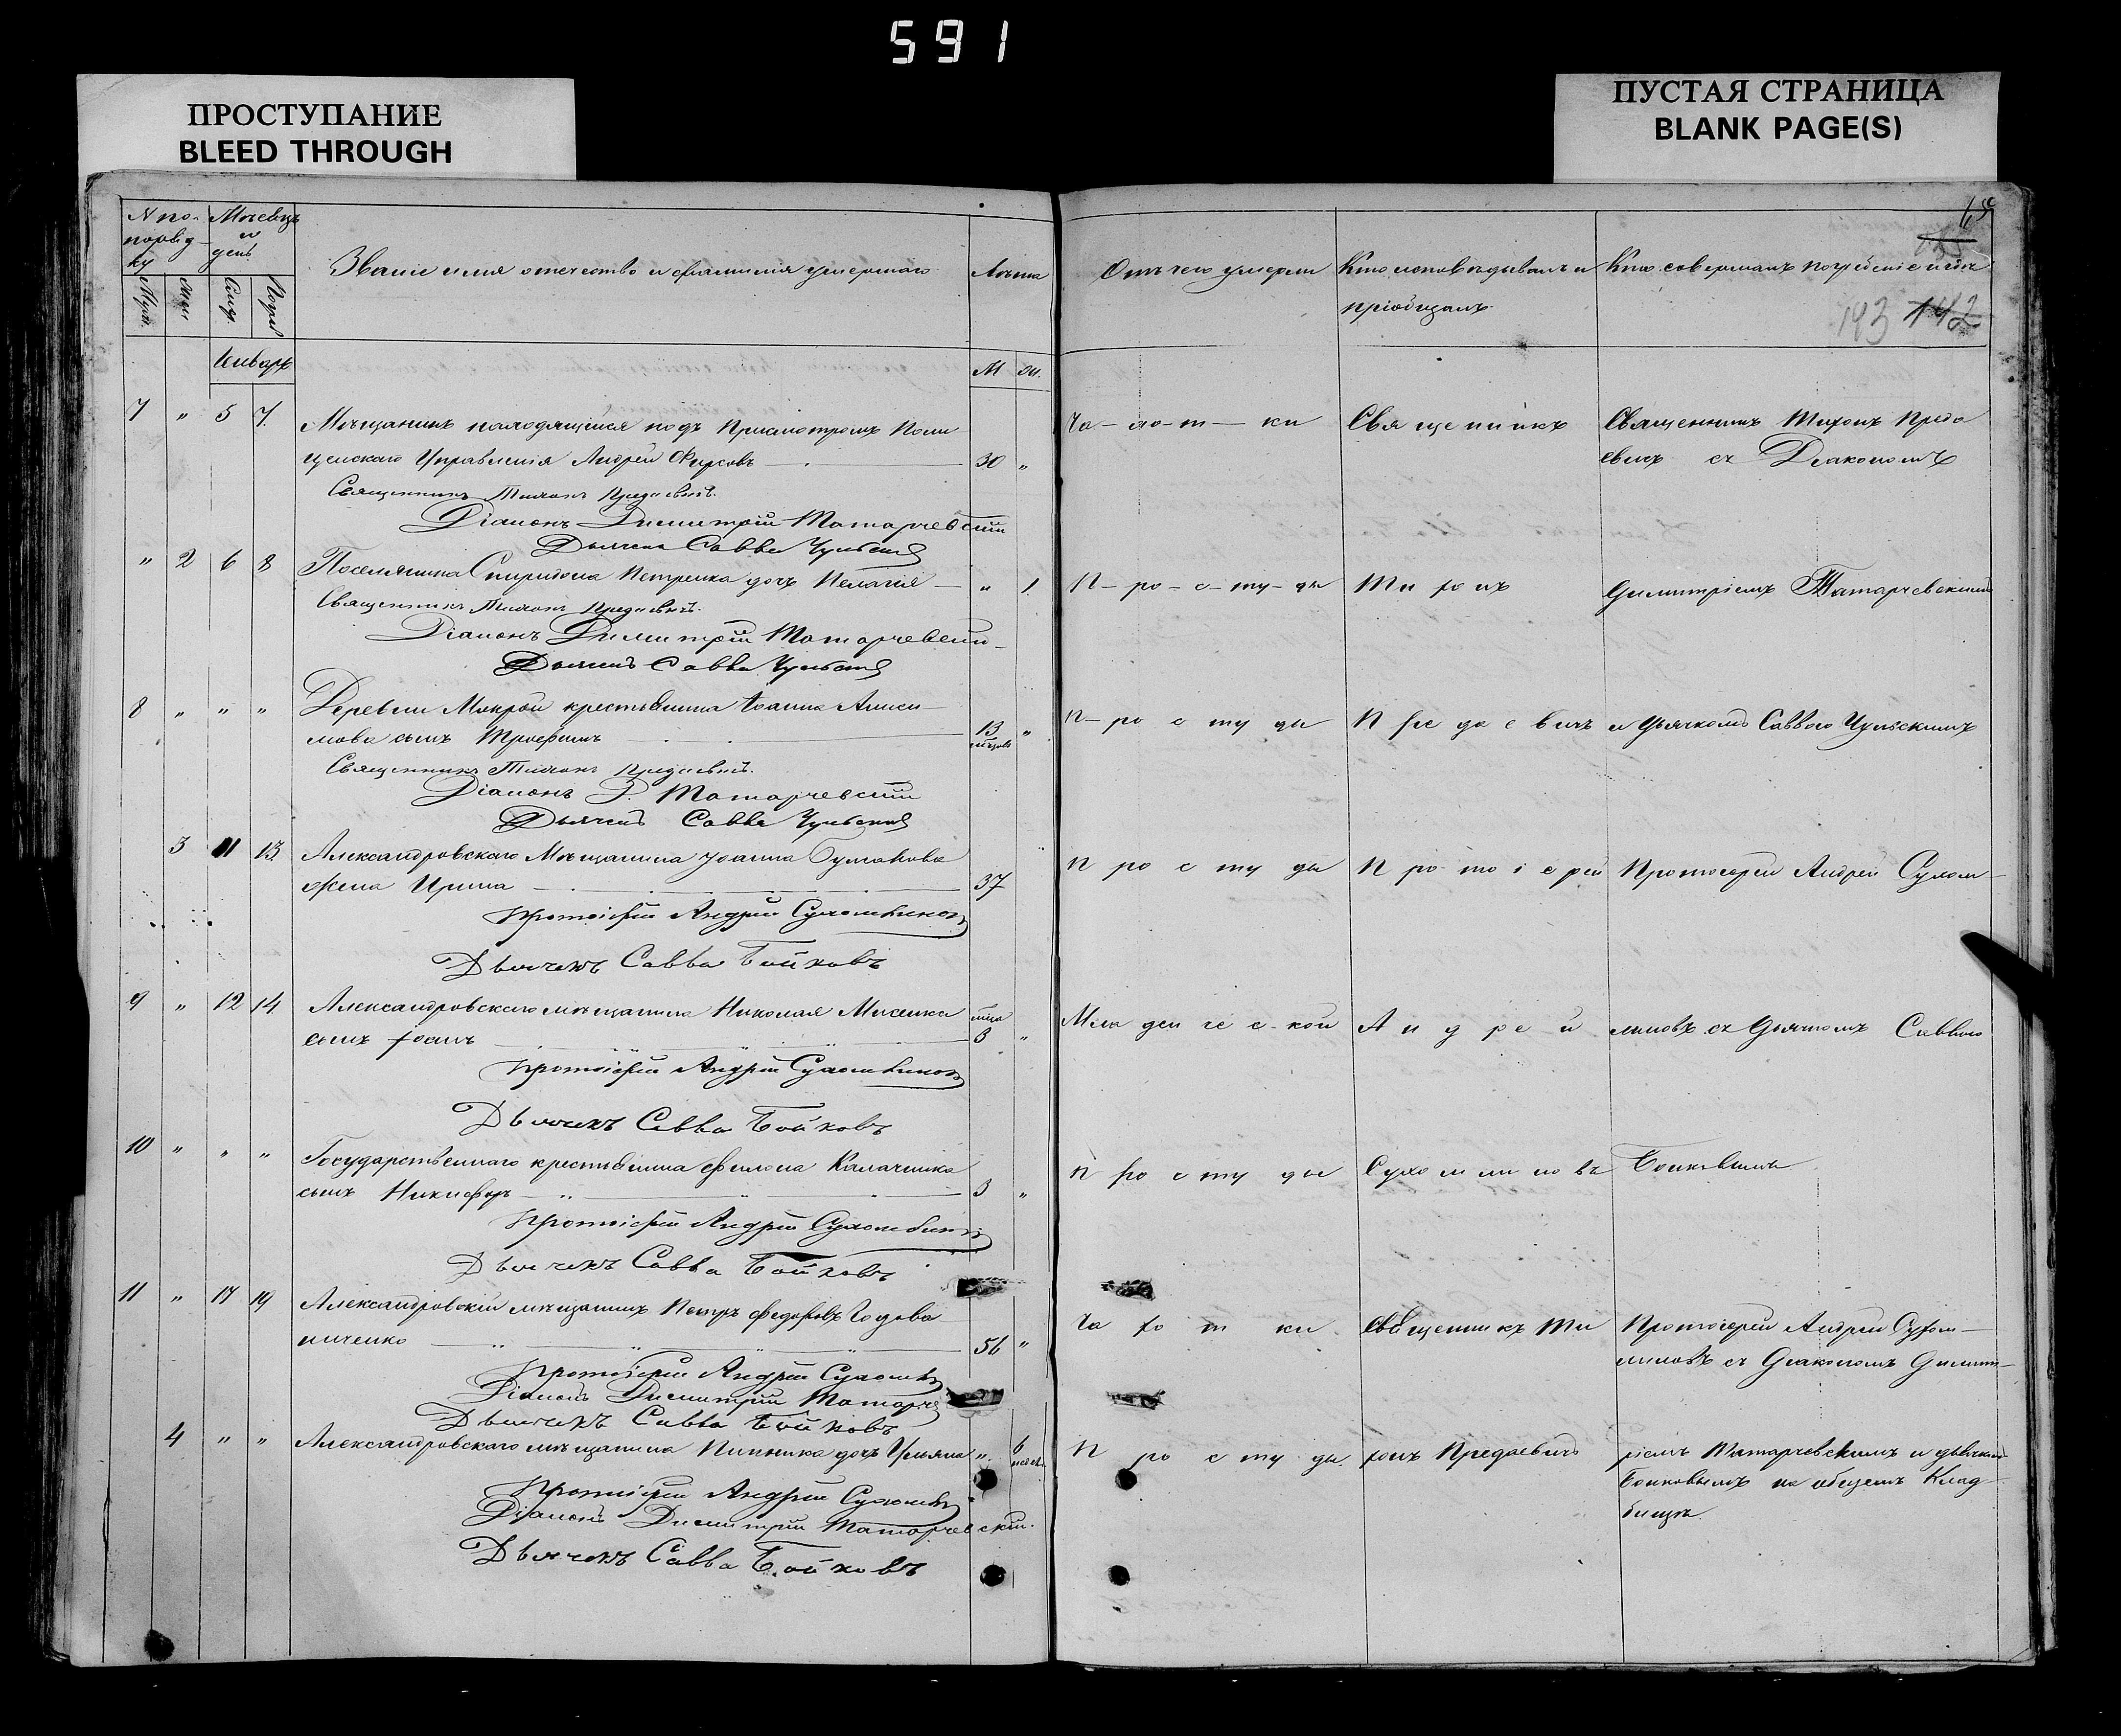 591
ПРОСТУПАНИЕ
BLEED THROUGH
ПУСТАЯ СТРАНИЦА
BLANK PAGE(S)
N по-
поряд-
ку
Мѣсецъ
и
день
Званіе имя отечество и фамилія умершаго
Лѣта
Отъ чего умерли
Кто исповѣдывалъ и
пріобщалъ
Кто совершалъ погребеніе и гдѣ
193 142
Январь
М
7 " 5 7
Мѣщанинъ находящійся подъ присмотромъ Поли
цейскаго Управленія Андрей Фирсовъ 30 "
Священникъ Тихонъ
Діаконъ Димитрій Татарчевскій
Дьячекъ Савва
Ча-хо-т-ки
Священникъ
Священникъ Тихонъ Предо
евичъ съ Діакономъ
" 2 6 8
Поселянина Спиридона Петренка дочь Пелагія " 1
Священникъ Тихонъ
Діаконъ Димитрій Татарчевскій
Дьячекъ Савва
П-ро-с-ту-ды
Ти хонъ
Димитріемъ Татарчевскимъ
8 " " "
Деревни Мокрой крестьянина Іоанна Аниси
мова сынъ Трофимъ "
Священникъ Тихонъ
Діаконъ Д. Татарчевскій
Дьячекъ Савва
П-ро с ту ды
и Дьячкомъ Саввою
3 11 13
Александровскаго Мѣщанина Іоанна
жена Ирина 37
Протоіерей Андрей Сухомлиновъ
Дьячекъ Савва Бойковъ
П ро с ту ды
П ро то і е рей
Протоіерей Андрей Сухом-
9 " 12 14
Александровскаго мѣщанина Николая Мисенка
сынъ Іоанъ "
Протоіерей Андрей Сухомлиновъ
Дьячекъ Савва Бойковъ
Мла ден че с-кой
А н д ре й
линовъ съ Дьячкомъ Саввою
10 " " "
Государственнаго крестьянина Филона Калачника
сынъ Никифоръ 3 "
Протоіерей Андрей Сухомлиновъ
Дьячекъ Савва Бойковъ
П ро с ту ды
Сухо м ли но въ
Бойковымъ
11 " 17 19
Александровскій мѣщанинъ Петръ Федоровъ Годова
ниченко 56 "
Протоіерей Андрей
Діаконъ Димитрій
Дьячекъ Савва Бойковъ
Ча хо т ки
Священникъ Ти
Протоіерей Андрей Сухом-
линовъ съ Діакономъ Димит-
4 " "
Александровскаго мѣщанина дочь Ульяна " 6
Протоіерей Андрей
Діаконъ Димитрій Татарчевскій.
Дьячекъ Савва Бойковъ
П ро с ту ды
хонъ Предаевичъ
ріемъ Татарчевскимъ и дьячкомъ
Бойковымъ на общемъ Клад-
бищѣ.